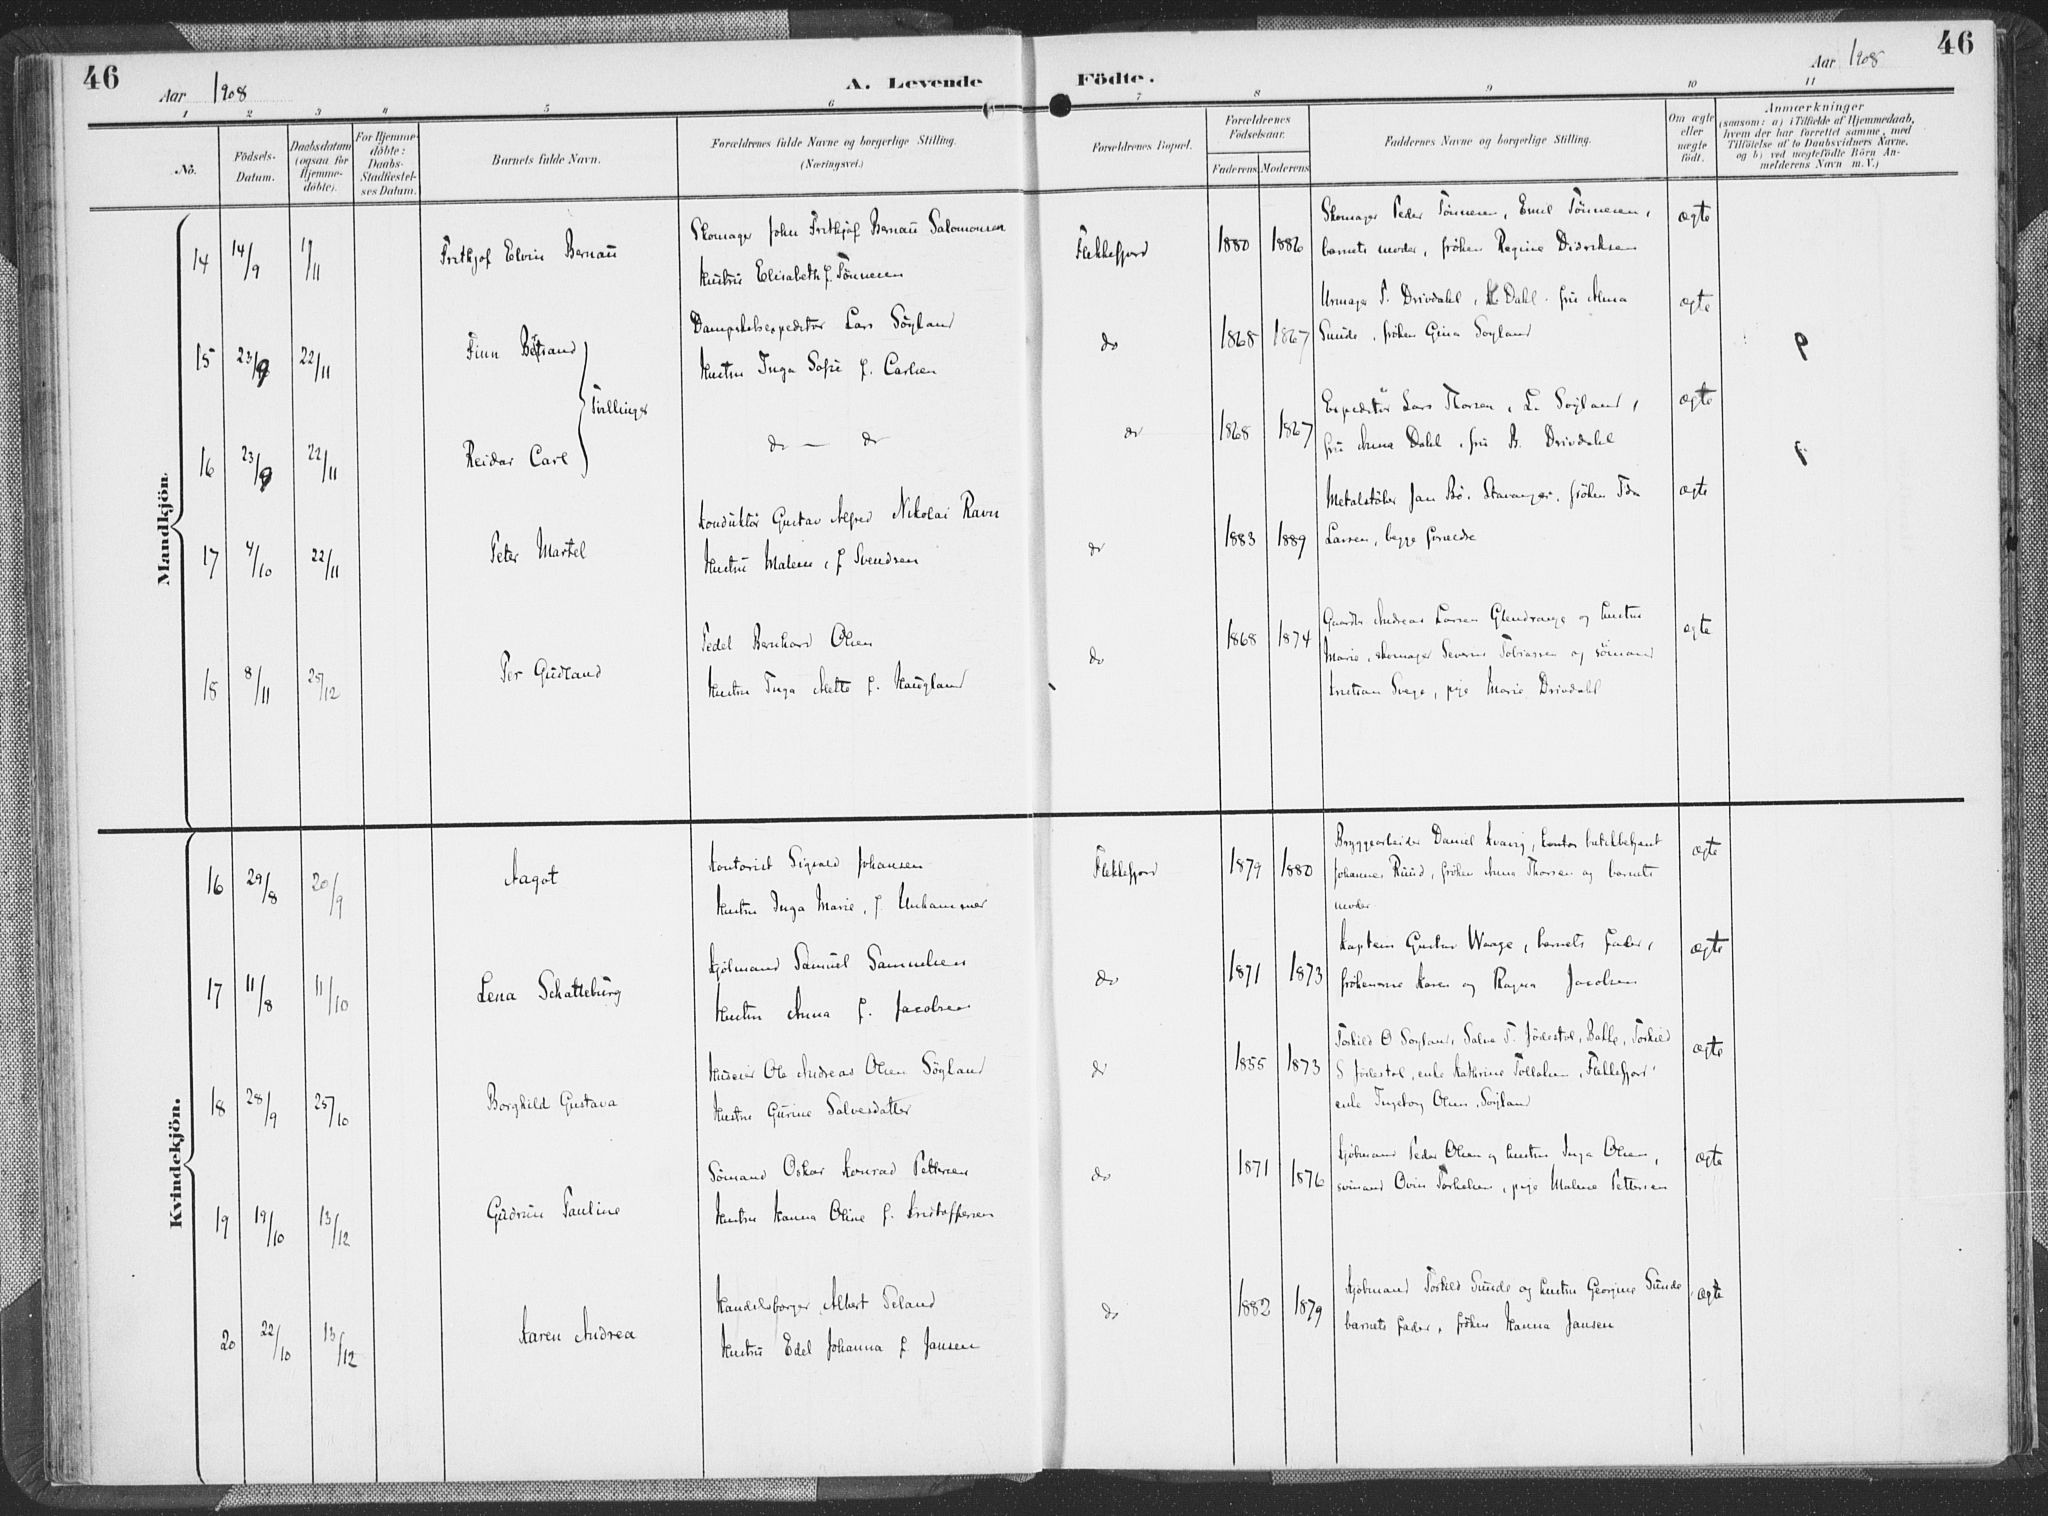 46
Aar 1908
A. Levende Födte.
Aar 1908
46
1 2 3 4 5 6 7 8 9 10 11
No.
Födsels-Datum.
Daabsdatum (ogsaa for Hjemme-döbte).
For Hjemme-döbte: Daabs-Stadfæstel-ses Datum.
Barnets fulde Navn.
Forældrenes fulde Navne og borgerlige Stilling. (Næringsvei.)
Forældrenes Bopæl.
Forældrenes Födselsaar.
Faderens Moderens
Faddernes Navne og borgerlige Stilling.
Om ægte eller uægte födt.
Anmærkninger
(saasom: a) i Tilfælde af Hjemmedaab, hvem der har forrettet samme, med Tilföielse af to Daabsvidners Navne, og b) ved uægtefödte Börn An-melderens Navn m. V.)
Mandkjön.
14 14/9 1/11 Fritkjof Elvin Bernaū
Skomager John Fritkjof Bernaū Salomonsen
Hustrū Elisabeth f. Tönnesen
Flekkefjord 1880 1886
Skomager Peder Tönnesen, Emil Tönnesen,
barnets moder, fröken Regine Didriksen
ægte
15 23/9 22/11 Finn
Dampskibsexpeditör Lars Söyland
Hustru Inga Sofie f. Carlsen
do 1868 1867
Urmager P. Drivdahl, Dahl. frū Anna
Sunde, fröken Gina Soyland
ægte
Tvillinger
16 23/9 22/11 Reidar Carl
do — do
do 1868 1867
Expeditör Lars Thorsen, L. Soyland,
frū Anna Dahl, frū B. Drivdahl
ægte
17 4/10 22/11 Peter Markel
Kondūktör Gustav Alfred Nikolai Ravn
Hustrū Malene, f Svendsen
do 1883 1889
Metalstöber Jan Bö, Stavanger, fröken Ida
Larsen, begge forældre
ægte
18 8/11 25/12 Per Gūdland
Pedel Bernhard Olsen
Hustru Inga Mette f. Haūgland
do 1868 1874
Gaardbr Andreas Larsen Glendrange og hustru
Marie, skomager Severin Tobiassen og sömand
Kristian Svege, pige Marie Drivdahl
ægte
Kvindekjön.
16 29/8 20/9 Aagot
Kontorist Sigvald Johansen
Hustru Inga Marie, f. Unhammer
Flekkefjord 1879 1880
Bryggearbeider Daniel Kvavig, butikbetjent
Johannes Rūūd, fröken Anna Thorsen og barnets
moder
ægte
17 11/8 11/10 Lena Schatteburg
Kjöbmand Samūel Samuelsen
Hustru Anna f. Jacobsen
do 1871 1873
Kaptein Gustav Waage, barnets fader,
frökenerne Karen og Ragna Jacobsen
ægte
18 28/9 25/10 Borghild Gustava
Huseier Ole Andreas Olsen Söyland
Hustru Gūrine Salvesdatter
do 1855 1873
Torkild O Soyland, Salve T. Jödestol, Bakke, Torkild
S Jödestol, enke Kathrine Tollaksen, Flekkefjord,
enke Ingeborg Olsen, Söyland
ægte
19 19/10 13/12 Gūdrūn Pauline
Sömand Oskar Konrad Pettersen
Hustru Hanna Oline f. Kristoffersen
do 1871 1876
Kjöbmand Peder Olsen og hustru Inga Olsen,
sömand Ovin Torkelsen, pige Malene Pettersen
ægte
20 22/10 13/12 Karen Andrea
Handelsborger Albert Seland
Hustrū Edel Johanna f. Jansen
do 1882 1879
Kjöbmand Torkild Sūnde og hustru Georgine Sūnde
barnets fader, fröken Hanna Jansen
ægte